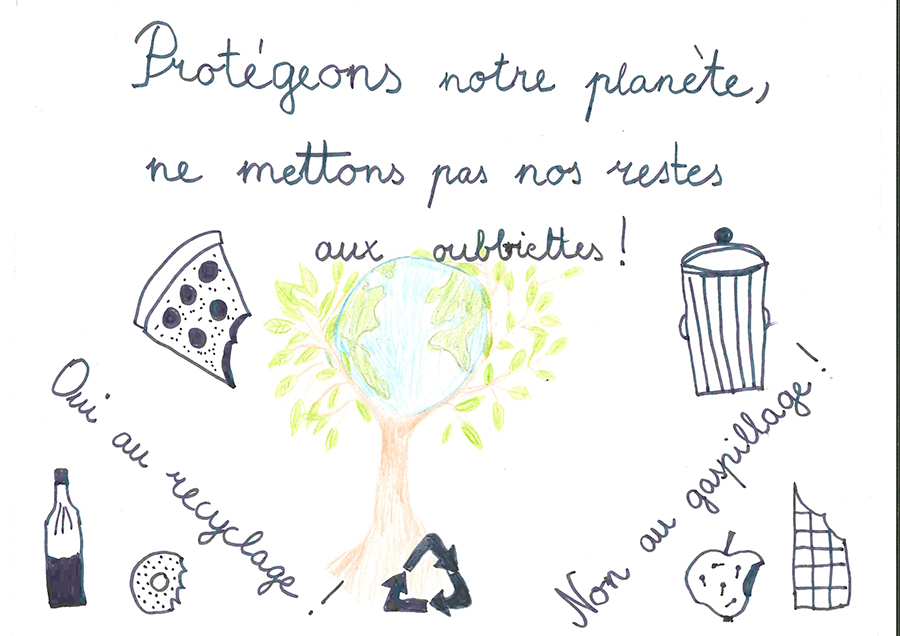 Protégeons notre planète,
ne mettons pas nos restes
aux oubbiettes !
Oui au recyclage !
Non au gaspillage !